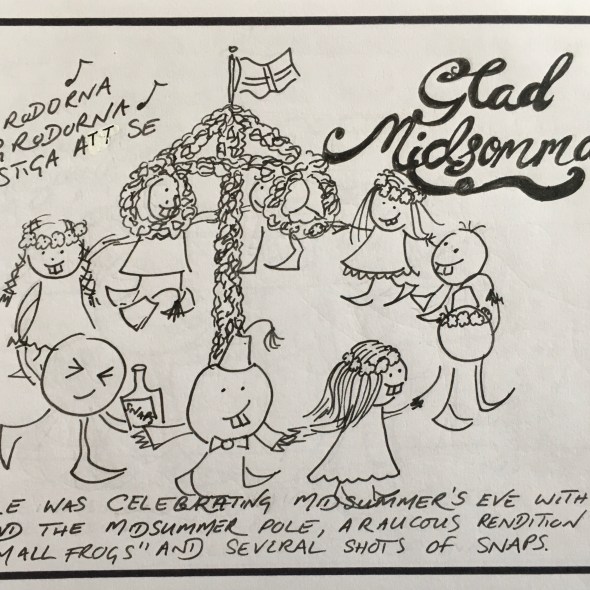 RODORNA
GRODORNA
STIGA ATT SE
Glad
Midsomma
SNAPS
LE WAS CELEBRATING MIDSUMMER'S EVE WITH
ND THE MIDSUMMER POLE, A RAUCOUS RENDITION
MALL FROGS" AND SEVERAL SHOTS OF SNAPS.